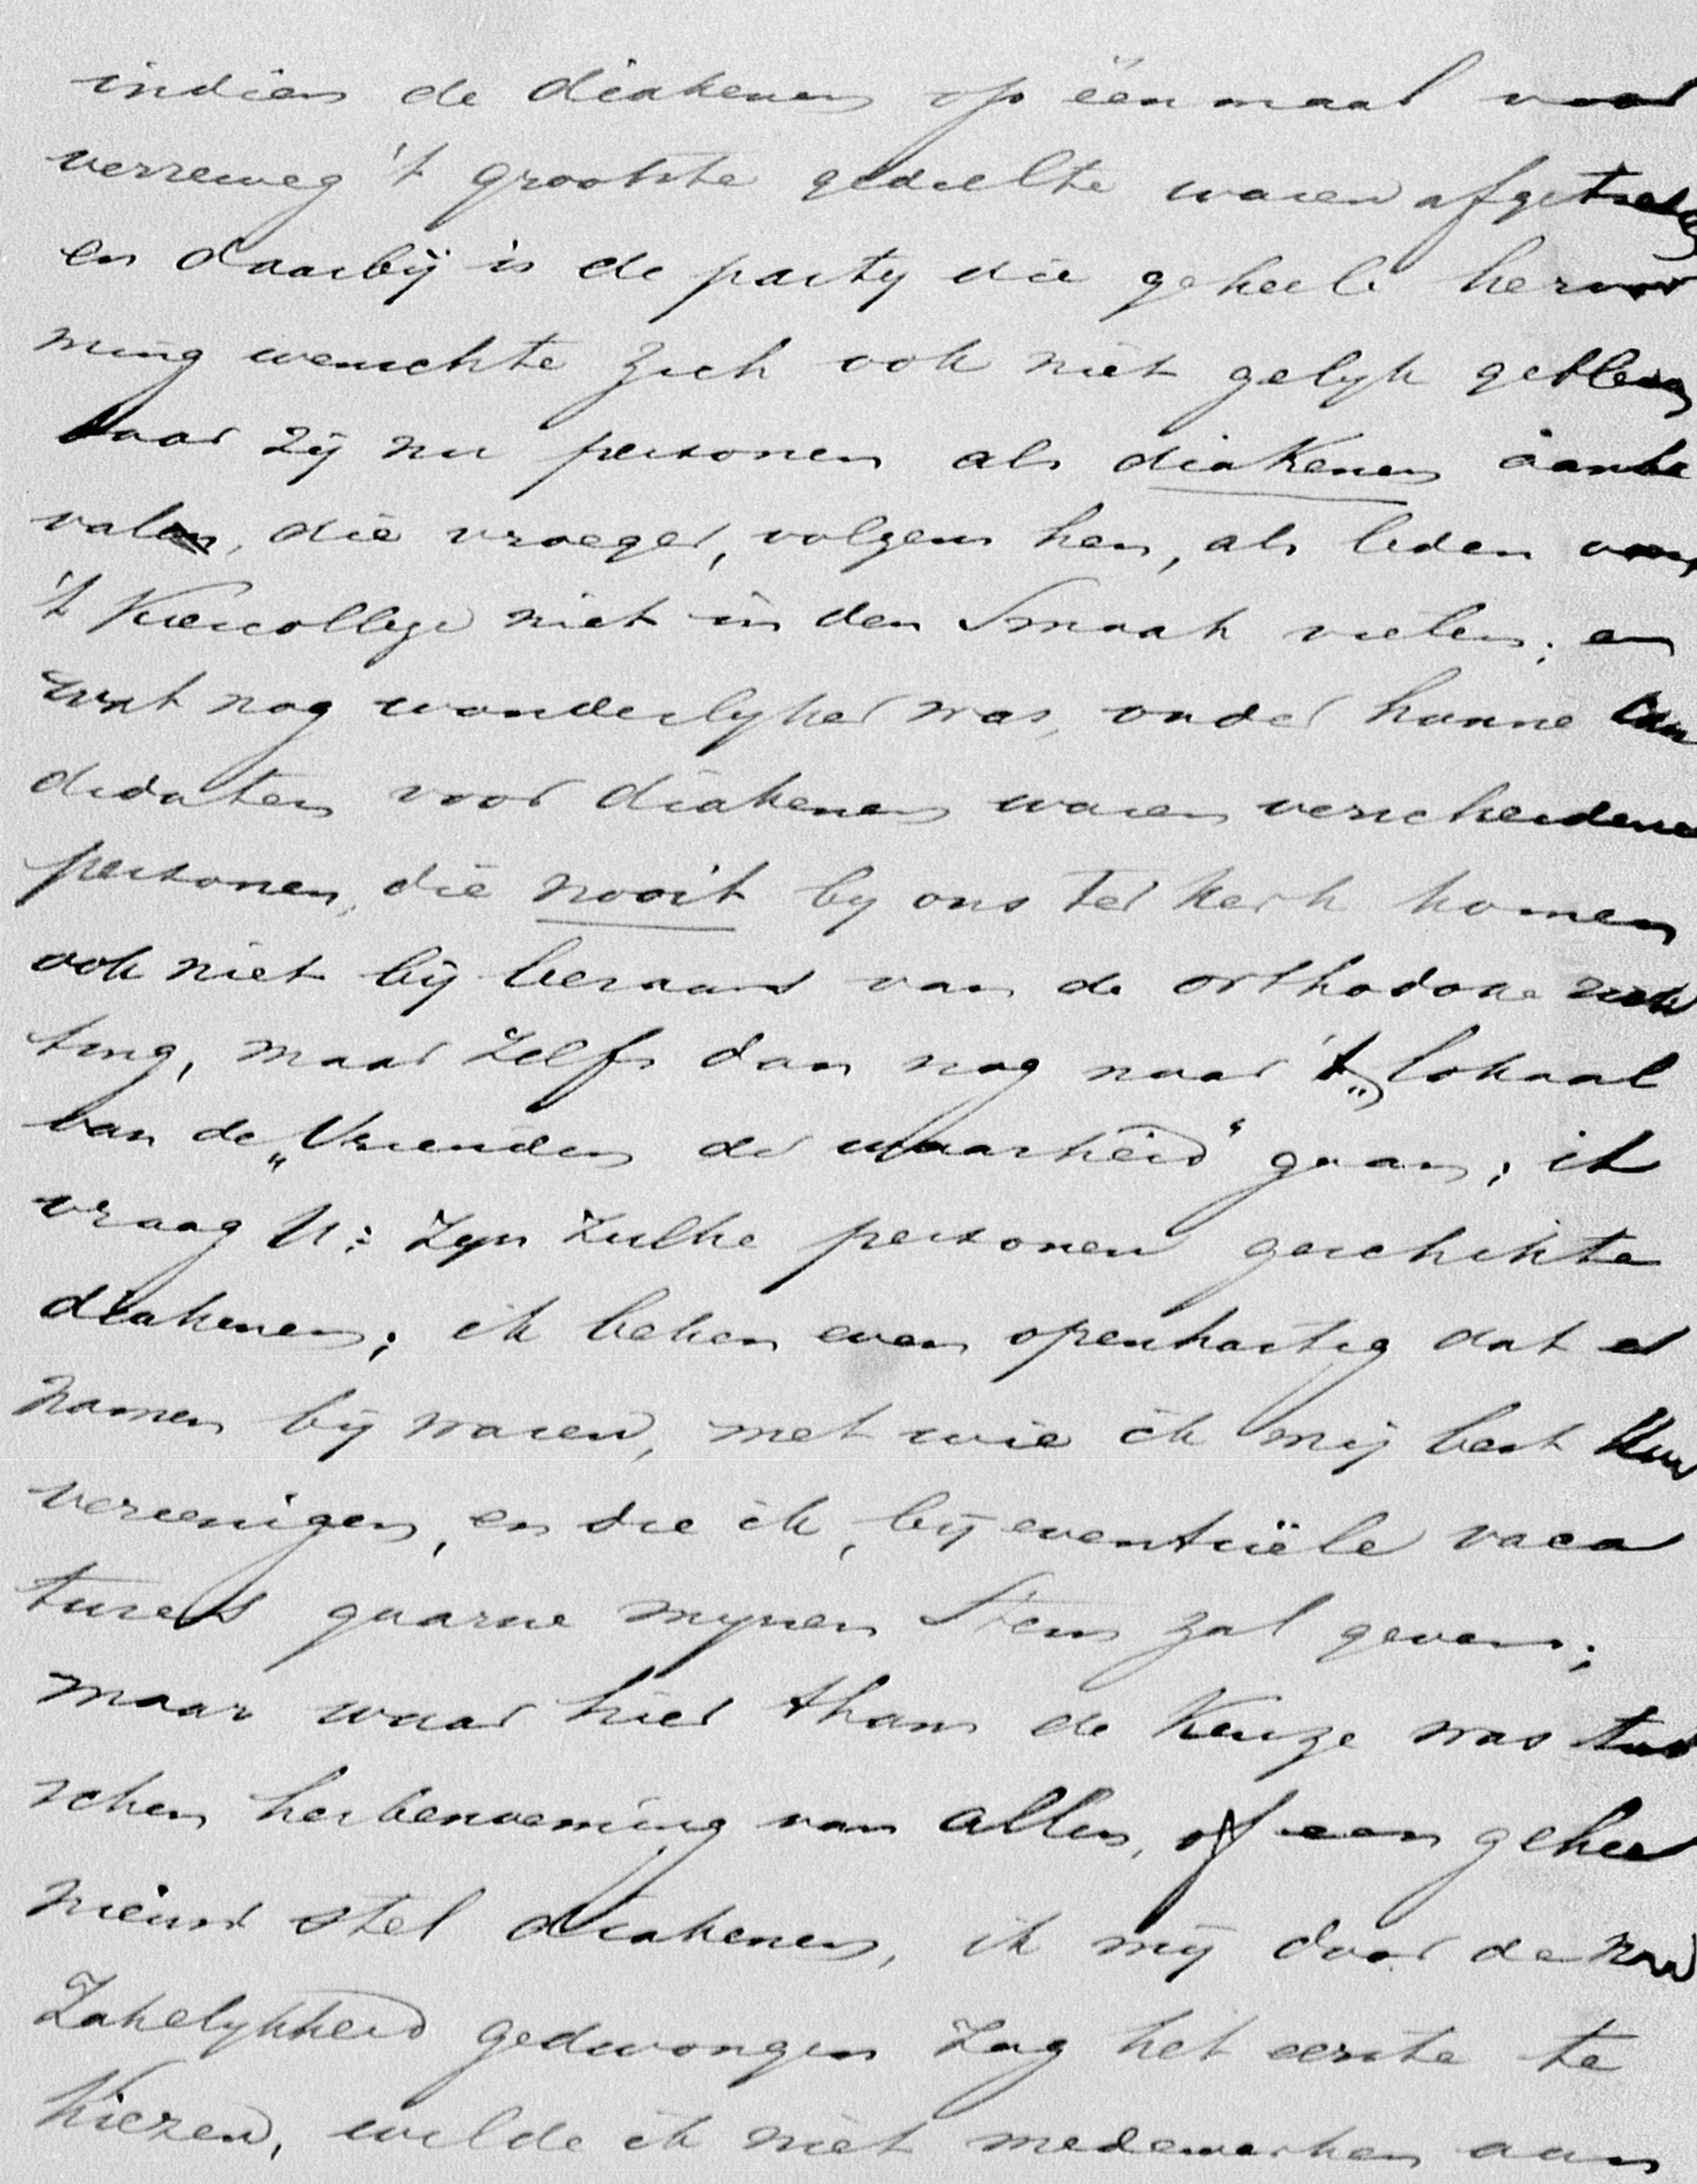 indien de diakenen op één maal voor
verreweg 't grootste gedeelte waren afgetreden
en daarbij is de party die geheele hervor
ming wenschte zich ook niet gelyk gebleven
daar zij nu personen als diakenen aanbe
valen, die vroeger, volgens hen, als leden van
't Kiescollege niet in den Smaak vielen; en
wat nog wonderlyker was, onder hunne can
didaten voor diakenen waren verscheidene
personen, die nooit by ons ter kerk komen
ook niet bij leeraars van de orthodoxe rich
ting, maar zelfs dan nog naar 't lokaal
van de „Vrienden der waarheid" gaan; ik
vraag U: Zyn Zulke personen geschikte
diakenen; ik beken even openhartig dat er
namen bij waren, met wie ik mij best kon
vereenigen, en die ik, bij eventuële vaca
tures gaarne mynen Stem zal geven;
maar waar hier thans de Keuze was tus
schen herbenoeming van allen, of een geheel
nieuw stel diakenen, ik mij door de nood
Zakelykheid gedwongen Zag het eerste te
Kiezen, wilde ik niet medewerken aan